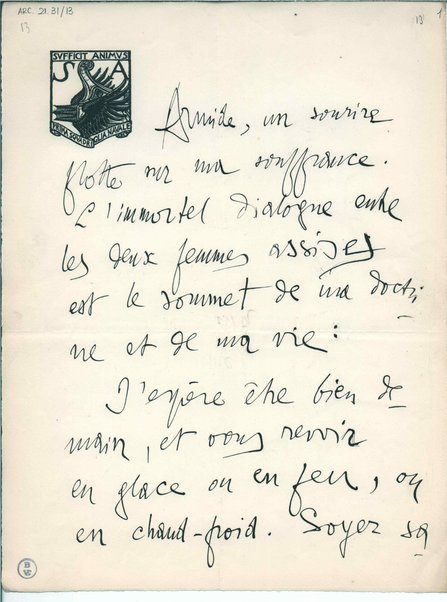 ARC. 21.31/13
13
13
1
SVFFICIT ANIMVS
S A
PRIMA SQVADRIGLIA NAVALE
Armide, un sourire
flotte sur ma souffrance.
L'immortel dialogue entre
les deux femmes assises
est le sommet de ma doctri-
ne et de ma vie :
J'espère être bien de-
main, et vous revoir
en glace ou en feu, ou
en chaud-froid. Soyez sa